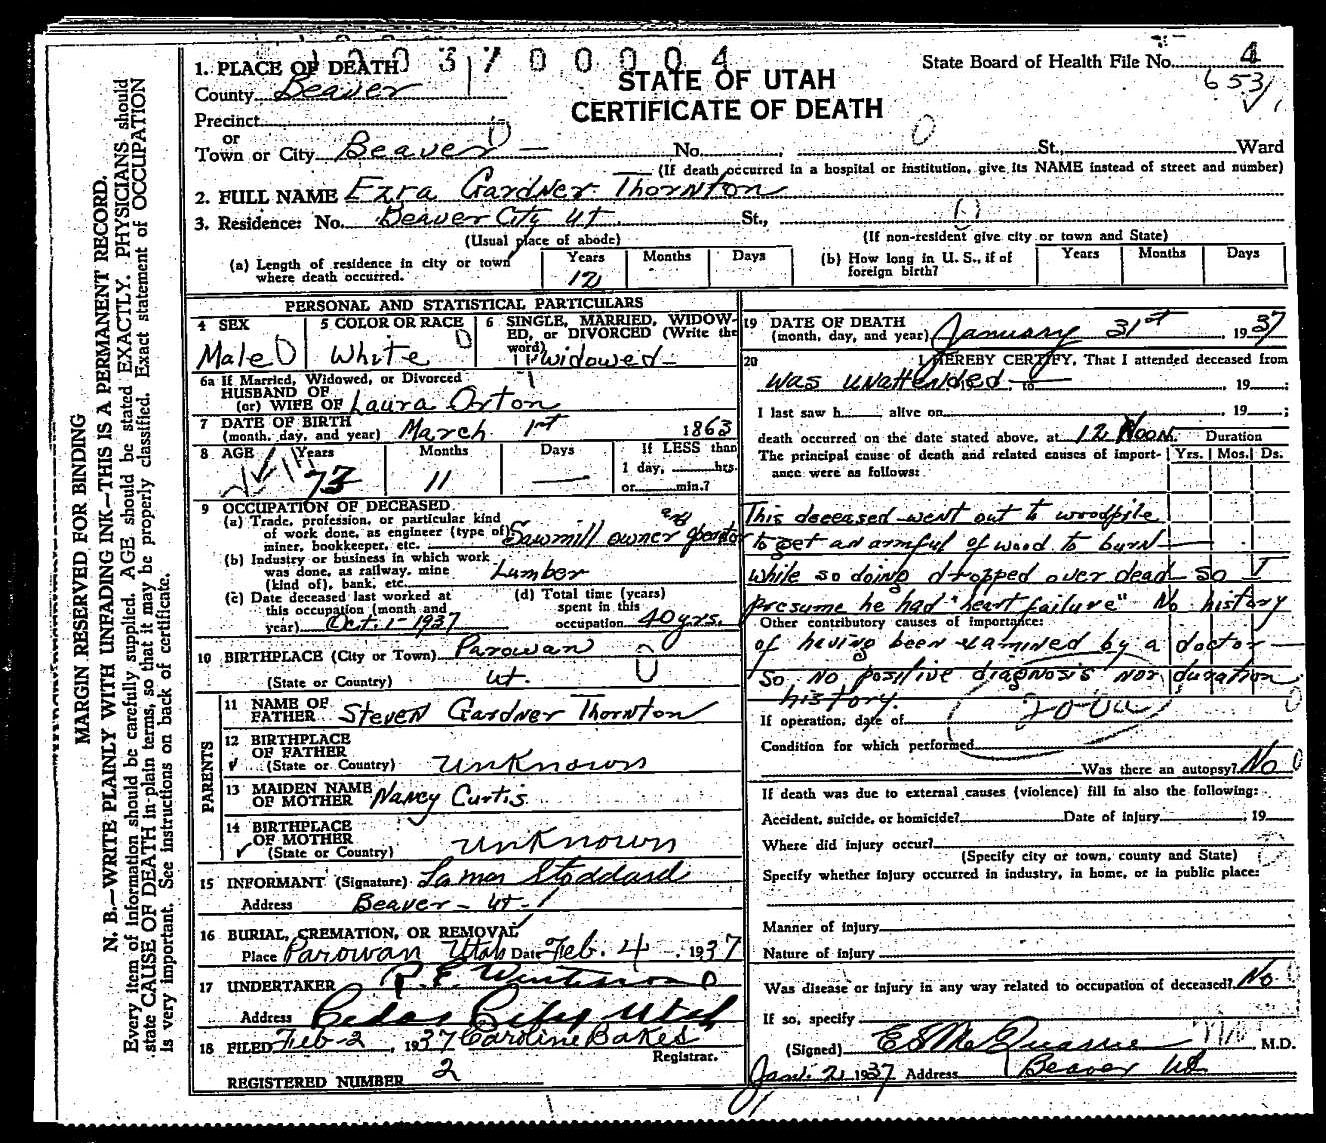 1 0 0 3 7 0 0 0 0 4
State Board of Health File No. 4
653
STATE OF UTAH
CERTIFICATE OF DEATH
1. PLACE OF DEATH
County Beaver
Precinct
or
Town or City Beaver — No. St., Ward
(If death occurred in a hospital or institution, give its NAME instead of street and number)
2. FULL NAME Ezra Gardner Thornton
3. Residence: No. Beaver City Ut. St.,
(Usual place of abode) (If non-resident give city or town and State)
(a) Length of residence in city or town where death occurred. Years 12 Months Days
(b) How long in U. S., if of foreign birth? Years Months Days
PERSONAL AND STATISTICAL PARTICULARS
4 SEX Male
5 COLOR OR RACE White
6 SINGLE, MARRIED, WIDOWED, or DIVORCED (Write the word) Widowed
6a If Married, Widowed, or Divorced
HUSBAND OF
(or) WIFE OF Laura Orton
7 DATE OF BIRTH
(month, day, and year) March 1st 1863
8 AGE Years 73 Months 11 Days —
If LESS than
1 day, hrs.
or min.?
9 OCCUPATION OF DECEASED
(a) Trade, profession, or particular kind
of work done, as engineer (type of)
miner, bookkeeper, etc. Sawmill owner and operator
(b) Industry or business in which work
was done, as railway, mine
(kind of), bank, etc. Lumber
(c) Date deceased last worked at
this occupation (month and
year) Oct. 1 - 1937
(d) Total time (years)
spent in this
occupation 40 yrs.
10 BIRTHPLACE (City or Town) Parowan
(State or Country) Ut.
PARENTS
11 NAME OF
FATHER Steven Gardner Thornton
12 BIRTHPLACE
OF FATHER
(State or Country) unknown
13 MAIDEN NAME
OF MOTHER Nancy Curtis
14 BIRTHPLACE
OF MOTHER
(State or Country) unknown
15 INFORMANT (Signature) Lamar Stoddard
Address Beaver - Ut -
16 BURIAL, CREMATION, OR REMOVAL
Place Parowan Utah Date Feb. 4, 1937
17 UNDERTAKER
Address Cedar City Utah
18 FILED Feb-2, 1937 Caroline Bakes
Registrar.
REGISTERED NUMBER 2
19 DATE OF DEATH
(month, day, and year) January 31st, 1937
20 I HEREBY CERTIFY, That I attended deceased from
was unattended to , 19 ;
I last saw h alive on , 19 ;
death occurred on the date stated above, at 12 Noon. Duration
The principal cause of death and related causes of importance were as follows: Yrs. Mos. Ds.
This deceased went out to woodpile
to get an armful of wood to burn —
while so doing dropped over dead - so I
presume he had "heart failure" No history
Other contributory causes of importance:
of having been examined by a doctor —
So no positive diagnosis nor duration
history.
If operation, date of
Condition for which performed
Was there an autopsy? No
If death was due to external causes (violence) fill in also the following:
Accident, suicide, or homicide? Date of injury , 19
Where did injury occur?
(Specify city or town, county and State)
Specify whether injury occurred in industry, in home, or in public place:
Manner of injury
Nature of injury
Was disease or injury in any way related to occupation of deceased? No
If so, specify
(Signed) E S McQuarrie M.D.
Jan. 21 1937 Address Beaver Ut
MARGIN RESERVED FOR BINDING
N. B.—WRITE PLAINLY WITH UNFADING INK—THIS IS A PERMANENT RECORD.
Every item of information should be carefully supplied. AGE should be stated EXACTLY. PHYSICIANS should
state CAUSE OF DEATH in plain terms, so that it may be properly classified. Exact statement of OCCUPATION
is very important. See instructions on back of certificate.